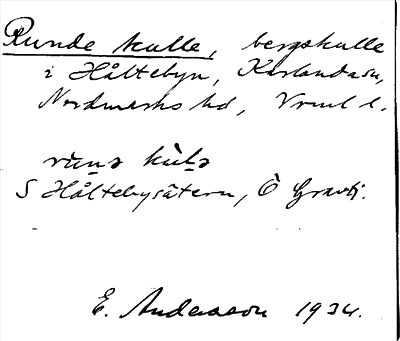 Runde kulle, bergskulle
i Håltebyn, Karlanda sn,
Nordmarks hd, Vrml l.
S Håltebysätern, Ö
E. Andersson 1934.